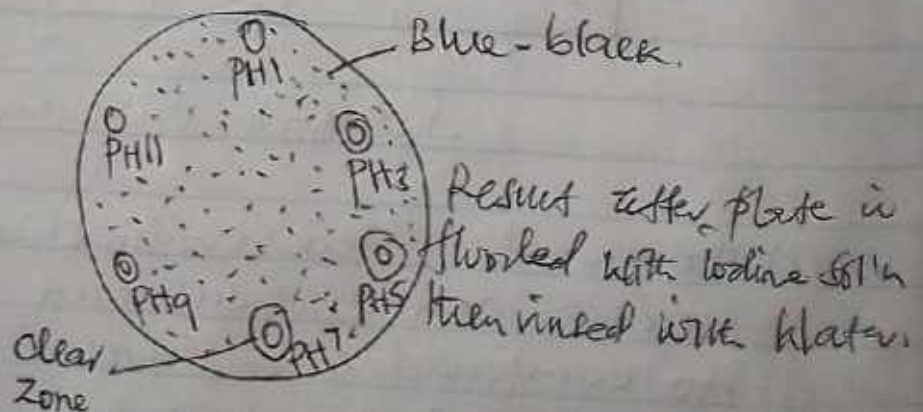 Blue-black.
PH1
PH3
PH11
Result after plate is
flooded with iodine sol'n
then rinsed with water.
PH5
PH9
PH7
Clear
Zone